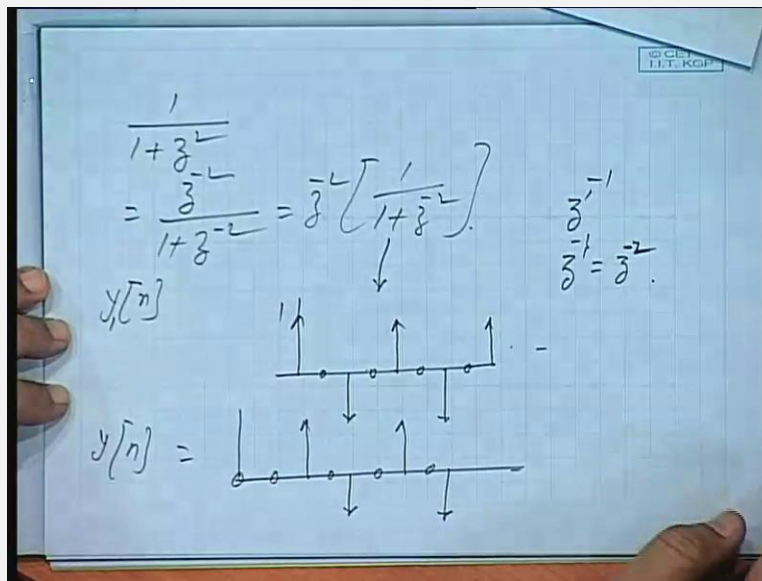 © CET
I.I.T. KGP
1
1 + z²
= z⁻² / 1 + z⁻² = z⁻² [ 1 / 1 + z⁻² ].
z'⁻¹
z⁻¹ = z⁻².
y₁[n]
1
. -
y[n] =